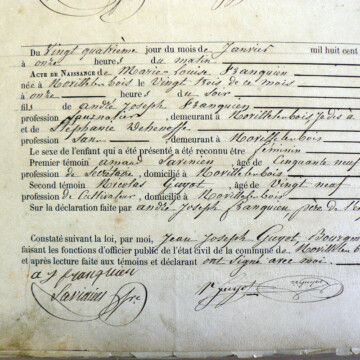 Du Vingt quatrième jour du mois de Janvier mil huit cent
à onze heures du matin
ACTE DE NAISSANCE de Marie Louise Franquien
née à Noville les bois le Vingt trois de ce mois
à onze heures du Soir
fils de andré Joseph Franquien
profession Journalier, demeurant à Noville les bois
et de Stéphanie Dehenesse
profession San, demeurant à Noville les bois
Le sexe de l'enfant qui a été présenté a été reconnu être feminin
Premier témoin amand Lavinien, âgé de Cinquante neuf
profession de Secrétaire, domicilié à Noville les bois
Second témoin Nicolas Guyot, âgé de Vingt neuf
profession de Cultivateur, domicilié à Noville les bois
Sur la déclaration faite par andré Joseph franquien père de
Constaté suivant la loi, par moi, Jean Joseph Guyot Bourgm
faisant les fonctions d'officier public de l'état civil de la commune de Noville les b
et après lecture faite aux témoins et déclarant ont signé avec moi
a j franquien
guyot